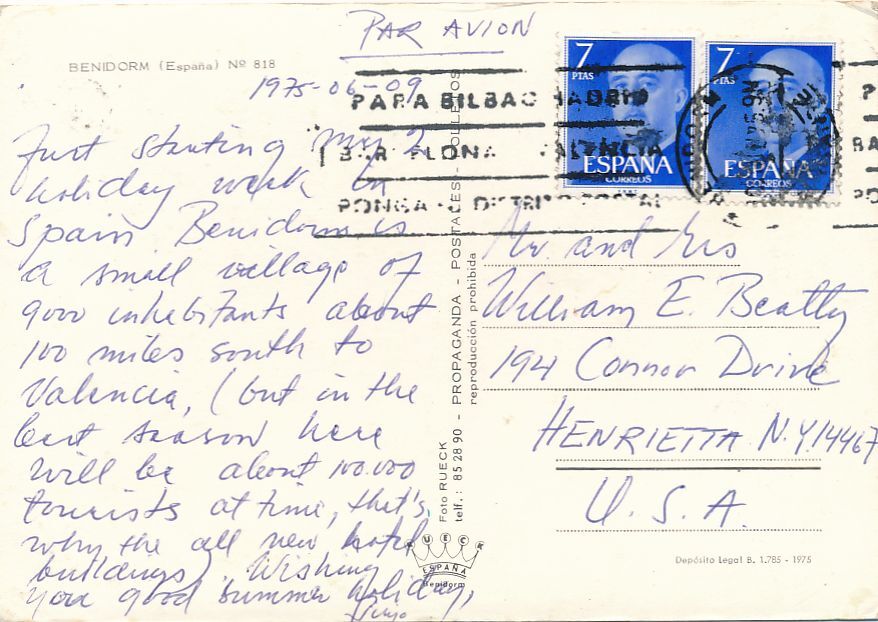 PAR AVION
BENIDORM (España) Nº 818
1975-06-09
Just starting my 2
holiday week in
Spain. Benidorm is
a small village of
9000 inhabitants about
100 miles south to
Valencia, (but in the
best season here
will be about 100.000
tourists at time, that's
why the all new hotel
buildings). Wishing
you good summer holiday,
7
PTAS
ESPAÑA
CORREOS
7
PTAS
ESPAÑA
CORREOS
PARA BILBAO MADRID
BARCELONA VALENCIA
PONGA EL DISTRITO POSTAL
BENIDORM
Mr. and Mrs
William E. Beatty
194 Connor Drive
HENRIETTA N.Y. 14467
U.S.A.
Foto RUECK - PROPAGANDA - POSTALES -
telf.: 85 28 90
reproducción prohibida
RUECK
ESPAÑA
Benidorm
Depósito Legal B. 1.785 - 1975